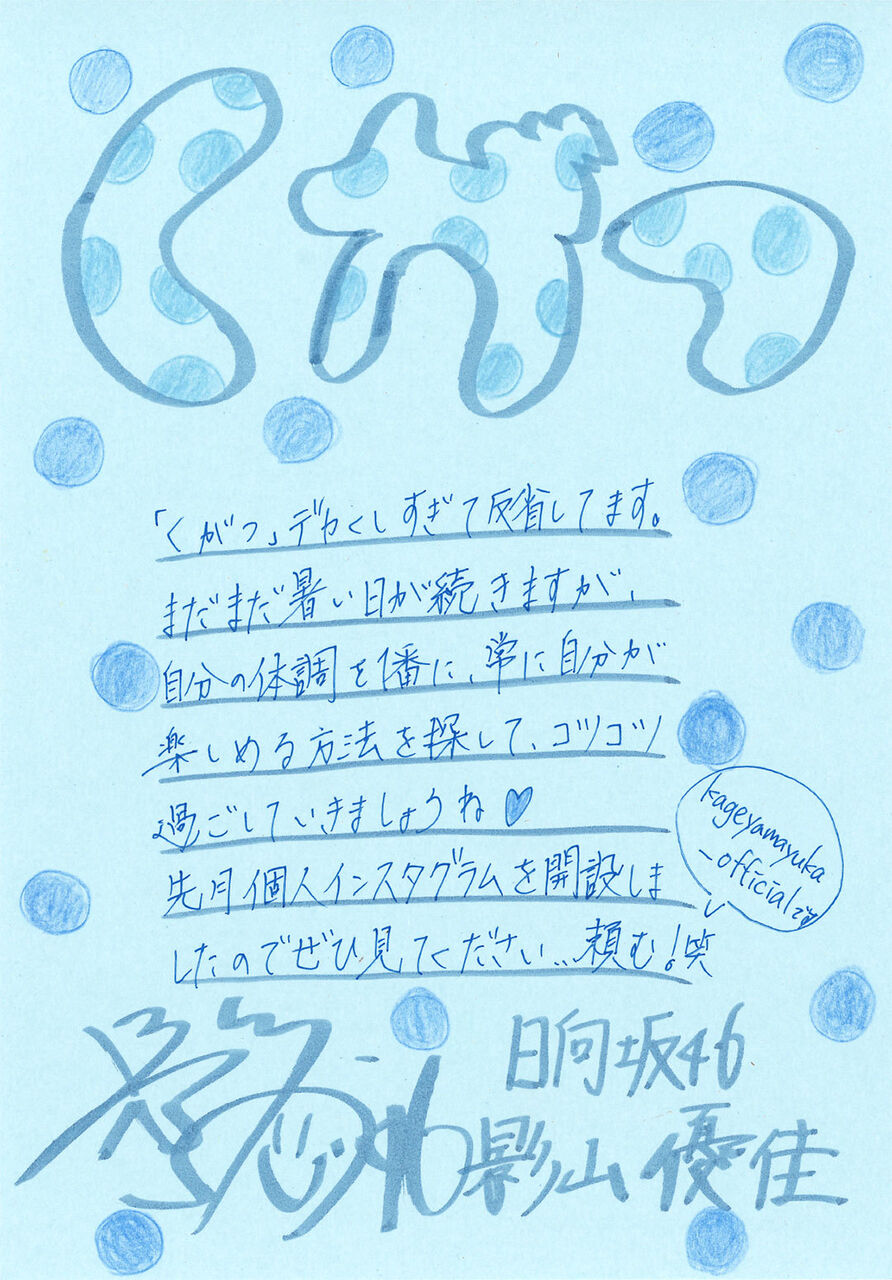 くがつ
「くがつ」デカくしすぎて反省してます。
まだまだ暑い日が続きますが、
自分の体調を1番に、常に自分が
楽しめる方法を探して、コツコツ
過ごしていきましょうね♥
kageyamayuka
_officialで♡
先月個人インスタグラムを開設しま
したのでぜひ見てください…頼む!笑
日向坂46
影山優佳